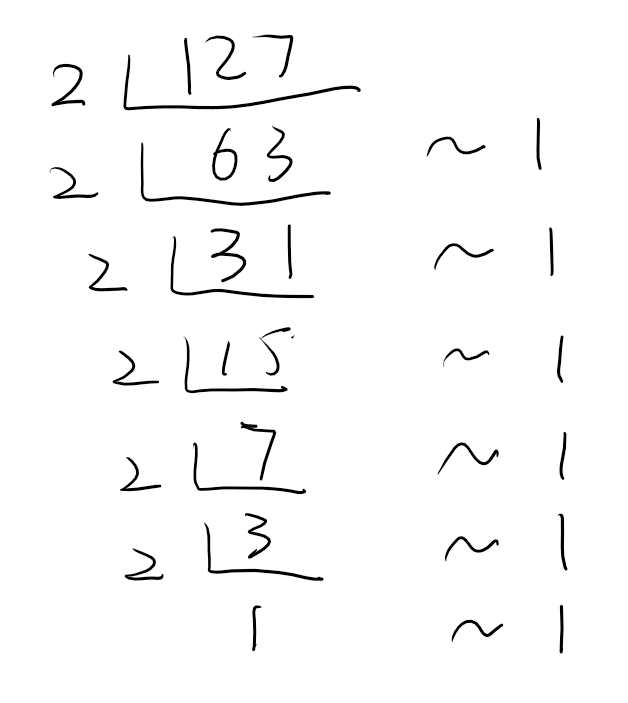 2 127
2 63 ~ 1
2 31 ~ 1
2 15 ~ 1
2 7 ~ 1
2 3 ~ 1
1 ~ 1